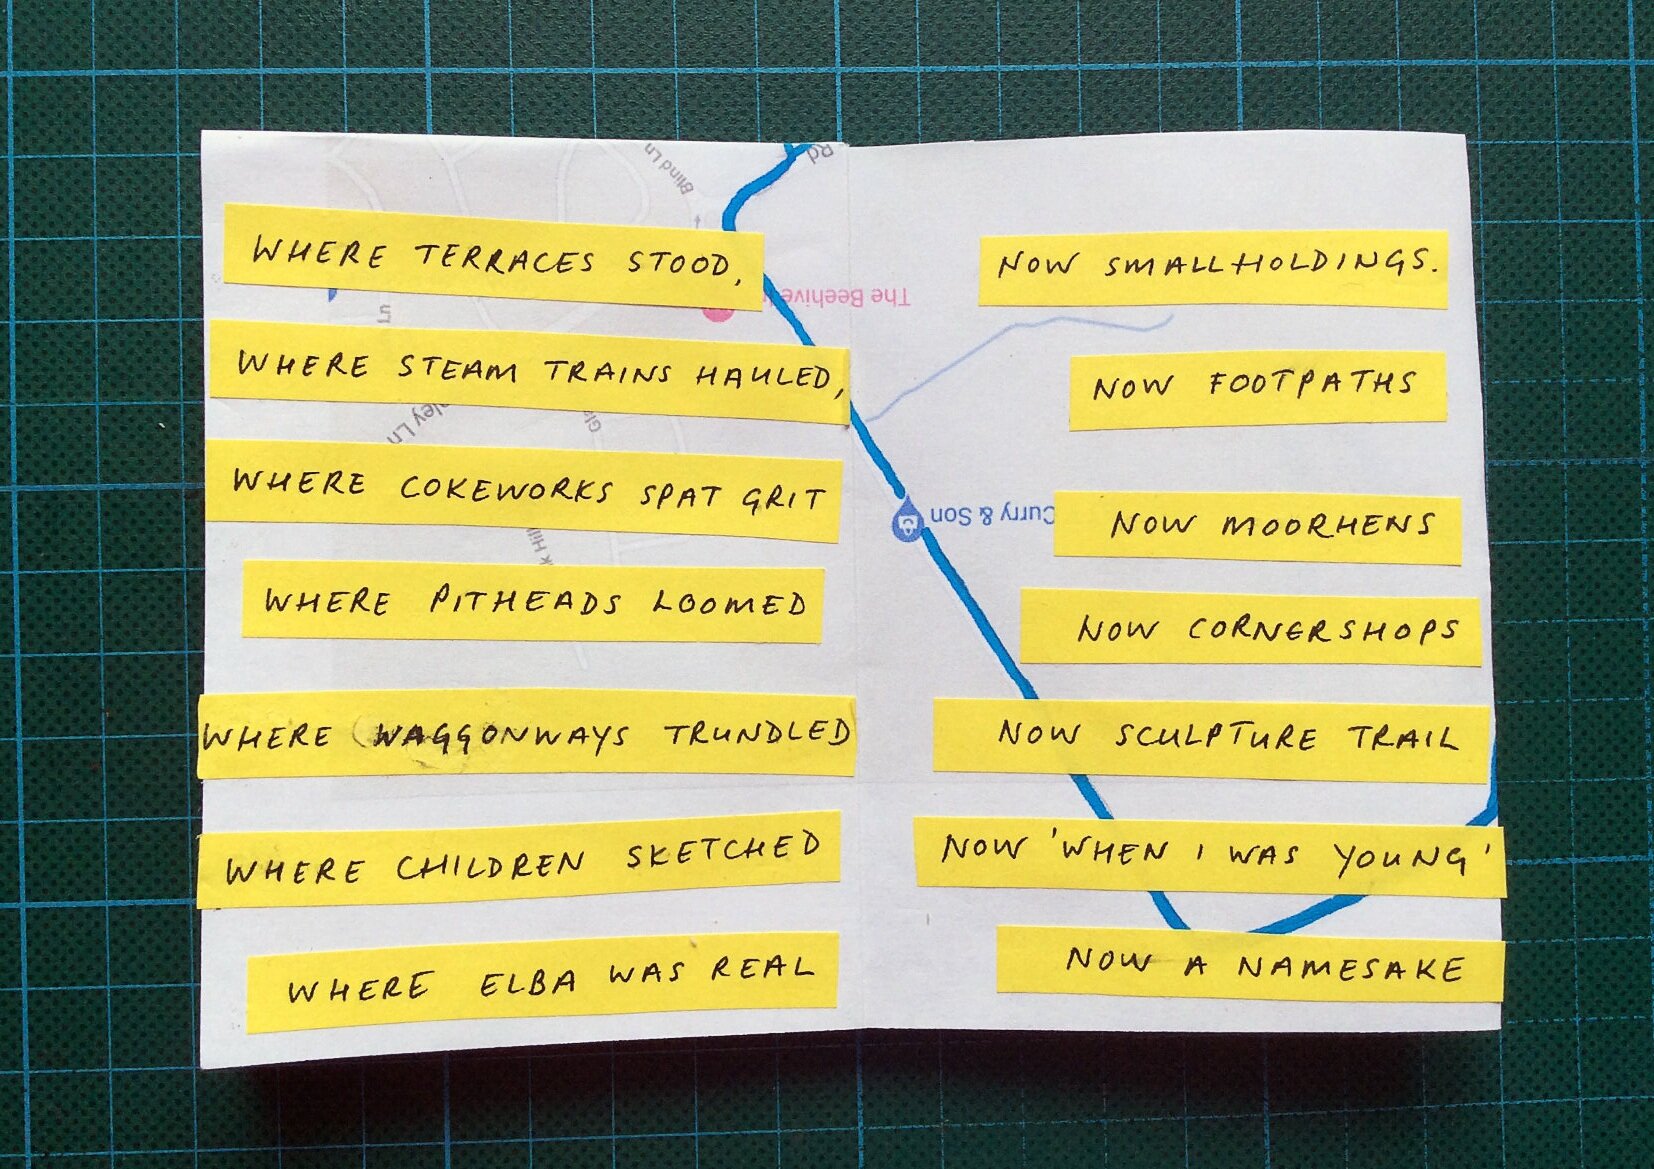 Rd
Blind Ln
WHERE TERRACES STOOD,
NOW SMALLHOLDINGS.
The Beehive
Ln
WHERE STEAM TRAINS HAULED,
NOW FOOTPATHS
ley Ln
WHERE COKEWORKS SPAT GRIT
Curry & Son
NOW MOORHENS
WHERE PITHEADS LOOMED
NOW CORNERSHOPS
WHERE WAGGONWAYS TRUNDLED
NOW SCULPTURE TRAIL
WHERE CHILDREN SKETCHED
NOW 'WHEN I WAS YOUNG'
WHERE ELBA WAS REAL
NOW A NAMESAKE